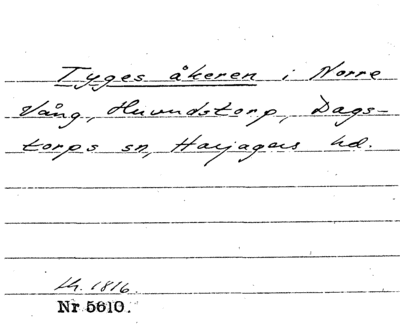 Tyges åkeren i Norre
Vång, Huvudstorp, Dags-
torps sn, Harjagers hd.
lh. 1816.
Nr 5610.